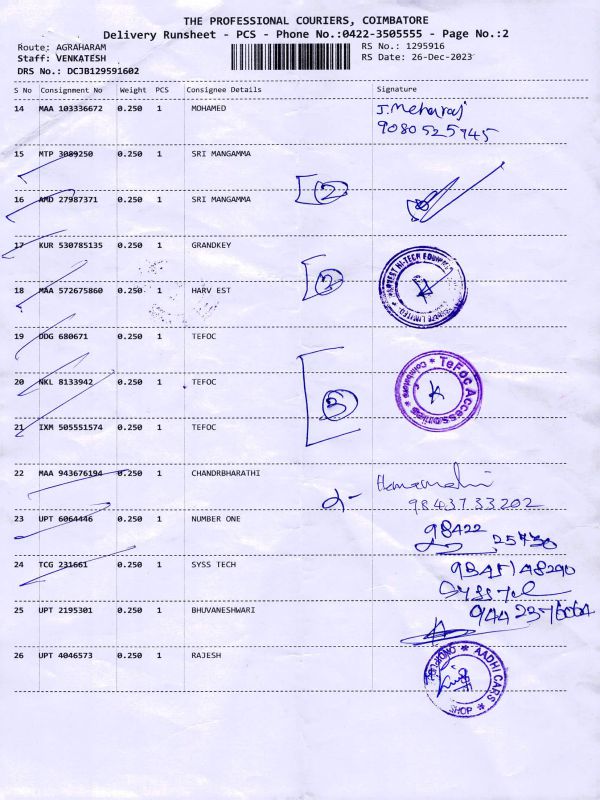 THE PROFESSIONAL COURIERS, COIMBATORE
Delivery Runsheet - PCS - Phone No.:0422-3505555 - Page No.:2
Route: AGRAHARAM
Staff: VENKATESH
DRS No.: DCJB129591602
RS No.: 1295916
RS Date: 26-Dec-2023
S No Consignment No Weight PCS Consignee Details Signature
14 MAA 103336672 0.250 1 MOHAMED
J. Meharaj
9080525945
15 MTP 3089250 0.250 1 SRI MANGAMMA
2
16 AMD 27987371 0.250 1 SRI MANGAMMA
17 KUR 530785135 0.250 1 GRANDKEY
18 MAA 572675860 0.250 1 HARV EST
19 DDG 680671 0.250 1 TEFOC
20 NKL 8133942 0.250 1 TEFOC
TeFoc Accessories * Coimbatore *
K
21 IXM 505551574 0.250 1 TEFOC
22 MAA 943676194 0.250 1 CHANDRBHARATHI
9843733202
23 UPT 6064446 0.250 1 NUMBER ONE
98422
25730
24 TCG 231661 0.250 1 SYSS TECH
25 UPT 2195301 0.250 1 BHUVANESHWARI
26 UPT 4046573 0.250 1 RAJESH
AADHI CARS
SHOP